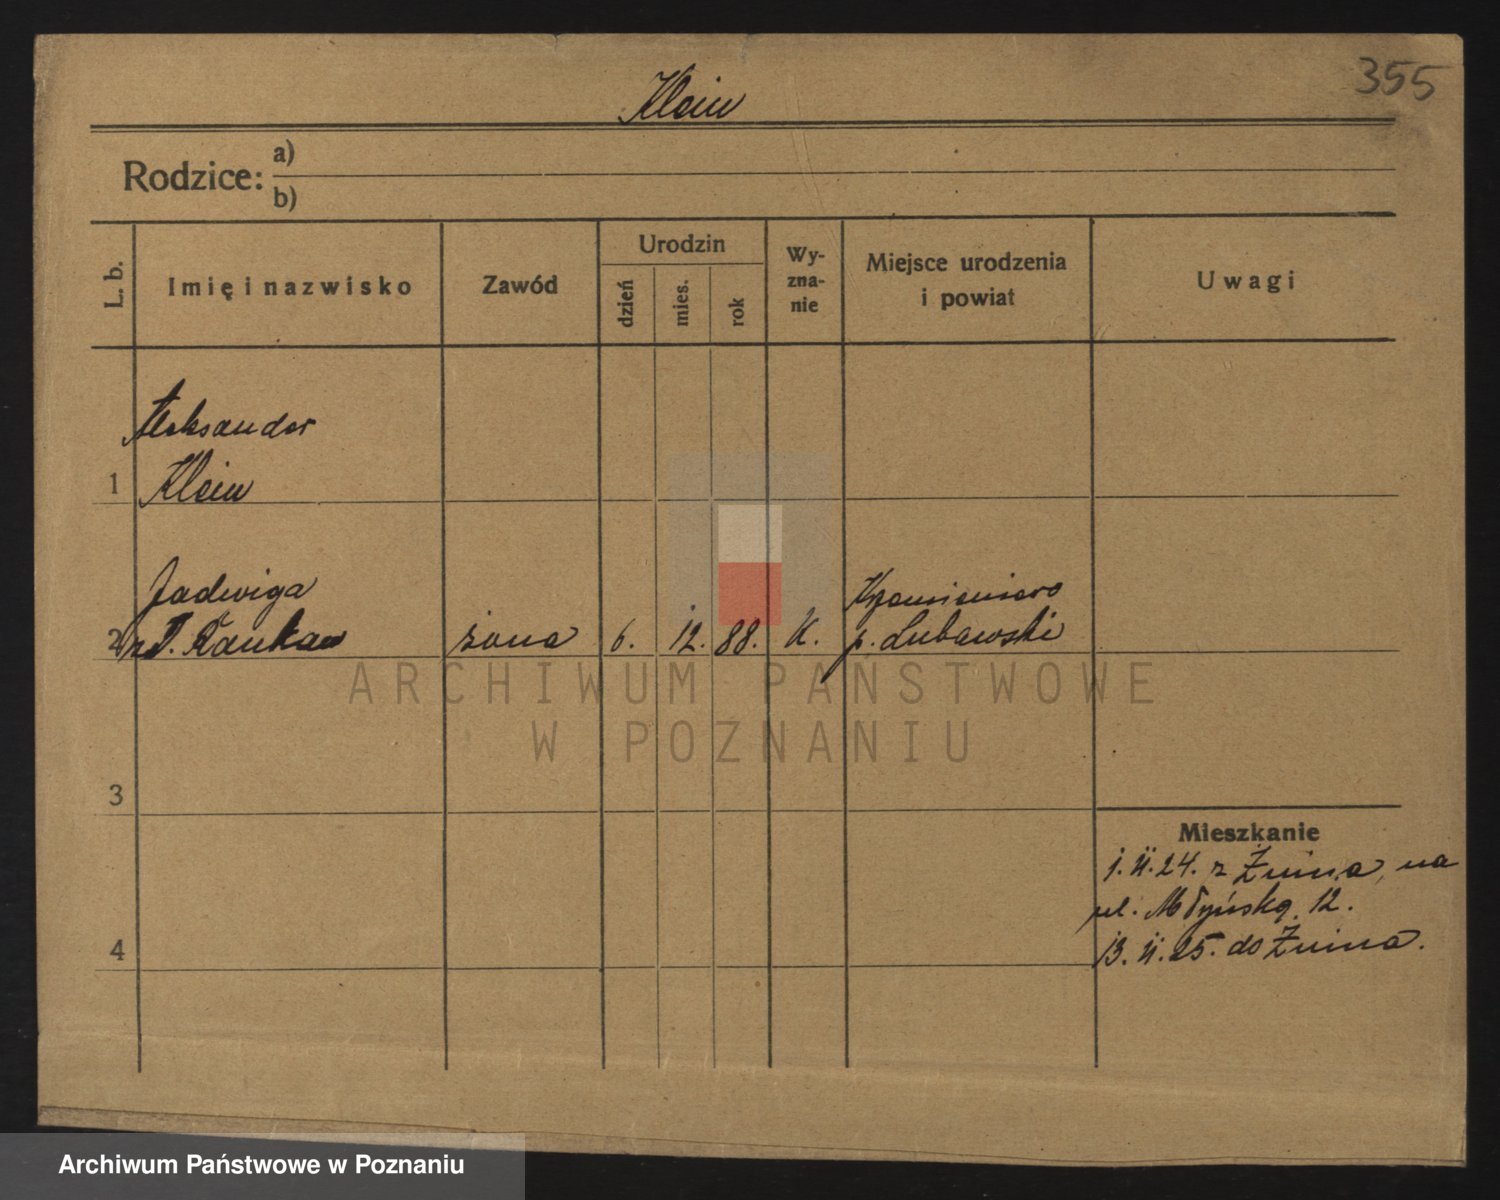 355
Klein
Rodzice: a)
b)
L. b.
Imię i nazwisko
Zawód
Urodzin
dzień
mies.
rok
Wy-
zna-
nie
Miejsce urodzenia
i powiat
Uwagi
Aleksander
1 Klein
Jadwiga
2 z d. żona 6. 12. 88. K. p. Lubawski
3
4
Mieszkanie
1. II. 24. z Żnina, na
ul. Młyńską 12.
13. II. 25. do Żnina.
ARCHIWUM PAŃSTWOWE
W POZNANIU
Archiwum Państwowe w Poznaniu